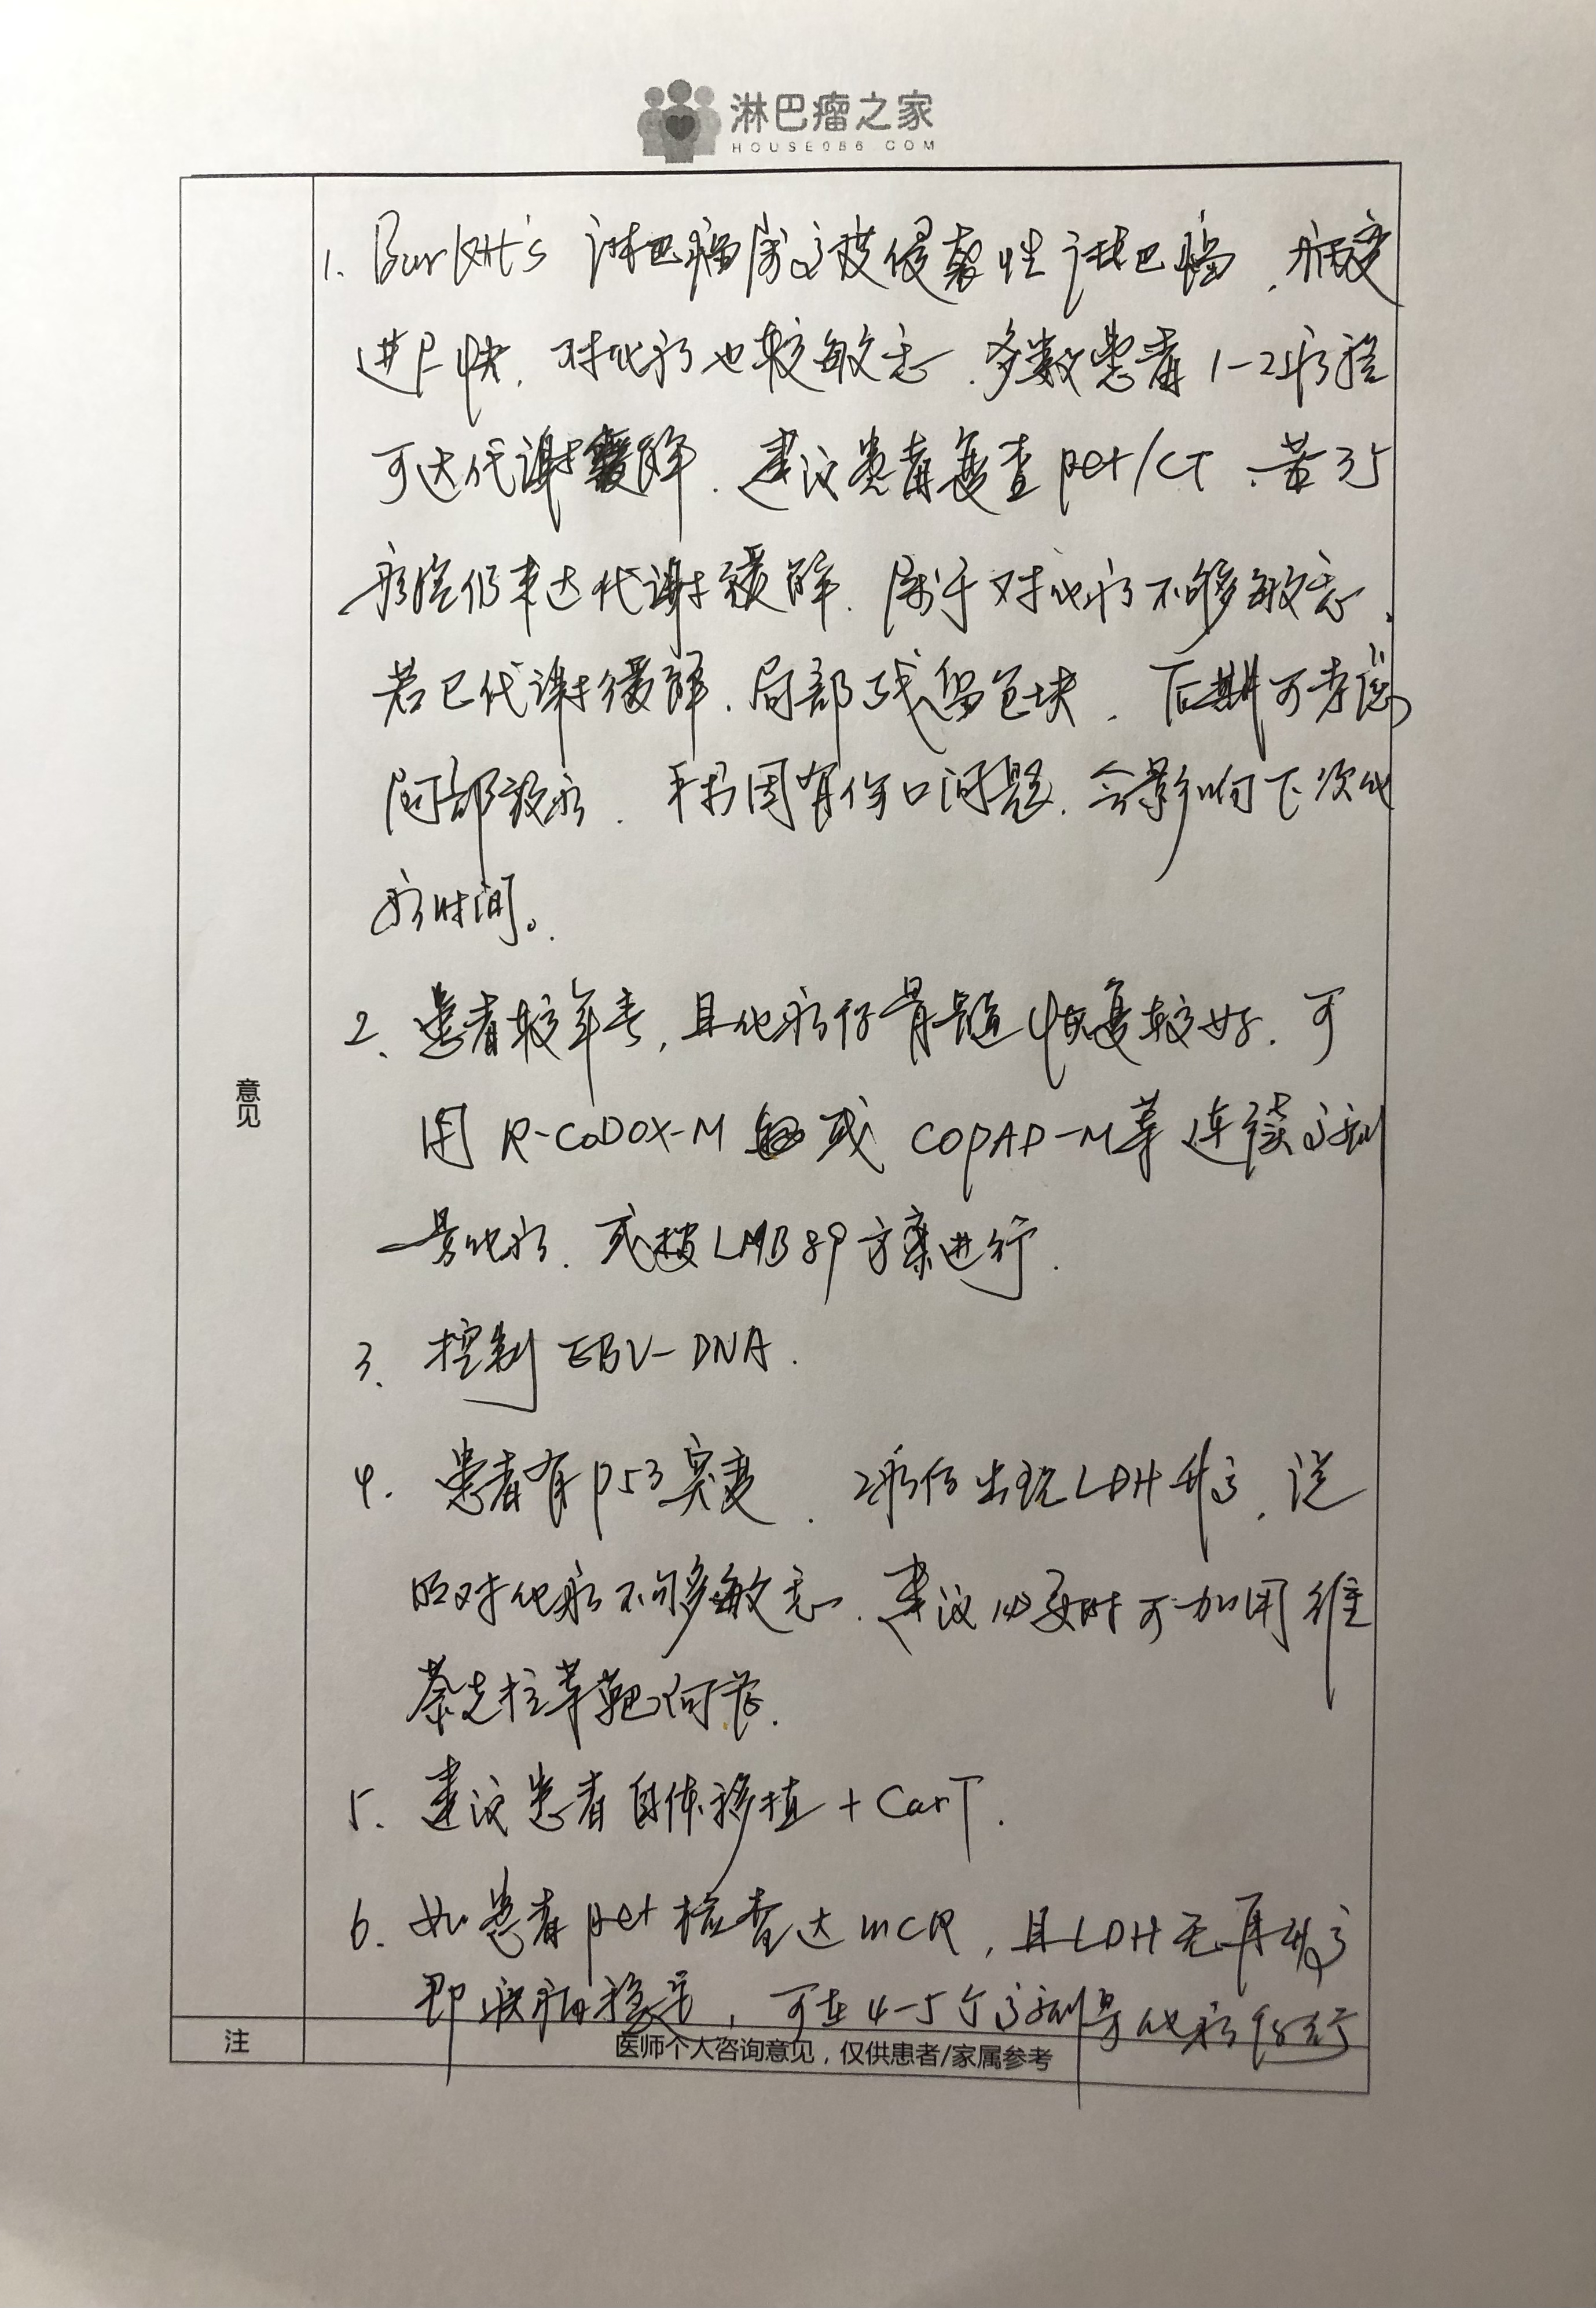 淋巴瘤之家
HOUSE086 COM
1. Burkitt's 淋巴瘤属高度侵袭性淋巴瘤，病变
进展快，对化疗也较敏感，多数患者1-2疗程
可达代谢缓解，建议患者复查pet/CT，若3个
疗程仍未达代谢缓解，属于对化疗不够敏感，
若已代谢缓解，局部残留包块，后期可考虑
局部放疗，手术因有伤口问题，会影响下次化
疗时间。
2、患者较年青，且化疗后骨髓恢复较好，可
用R-CODOX-M 或 COPAD-M等连续高剂
量化疗，或按LMB89方案进行.
3、控制EBV-DNA.
4. 患者有p53突变，2疗后出现LDH升高，说
明对化疗不够敏感，建议必要时可加用维
奈克拉等靶向药.
5. 建议患者自体移植+CarT.
6. 如患者pet检查达mCR，且LDH无再升高
即疾病稳定，可在4-5个高剂量化疗后行
意见
注
医师个人咨询意见，仅供患者/家属参考